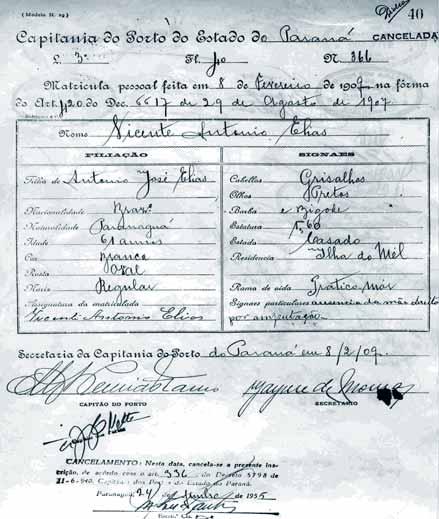 (Modelo N. 29)
40
Capitania do Porto do Estado do Paraná CANCELADA
L. 3º Fl. 70 N. 366
Matricula pessoal feita em 8 de Fevereiro de 1909 na fórma
do Art. 420 do Dec. 6617 de 29 de Agosto de 1907
Nome Vicente Antonio Elias
FILIAÇÃO
Filho de Antonio José Elias
Nacionalidade Braz.
Naturalidade Paranaguá
Idade 61 annos
Côr Branca
Rosto Oval
Nariz Regular
Assignatura do matriculado
Vicente Antonio Elias
SIGNAES
Cabellos Grisalhos
Olhos Pretos
Barba e Bigode
Estatura 1,60
Estado Casado
Residencia Ilha do Mél
Ramo de vida Pratico Mór
Signaes particulares ausencia da mão direita
por amputação.
Secretaria da Capitania do Porto do Paraná em 8/2/09.
CAPITÃO DO PORTO
SECRETARIO
CANCELAMENTO: Nesta data, cancela-se a presente ins-
crição, de acôrdo com o art. 336 do Decreto 5798 de
11-6-940. Capitania dos Portos do Estado do Paraná.
Paranaguá, 24 de Junho de 1955